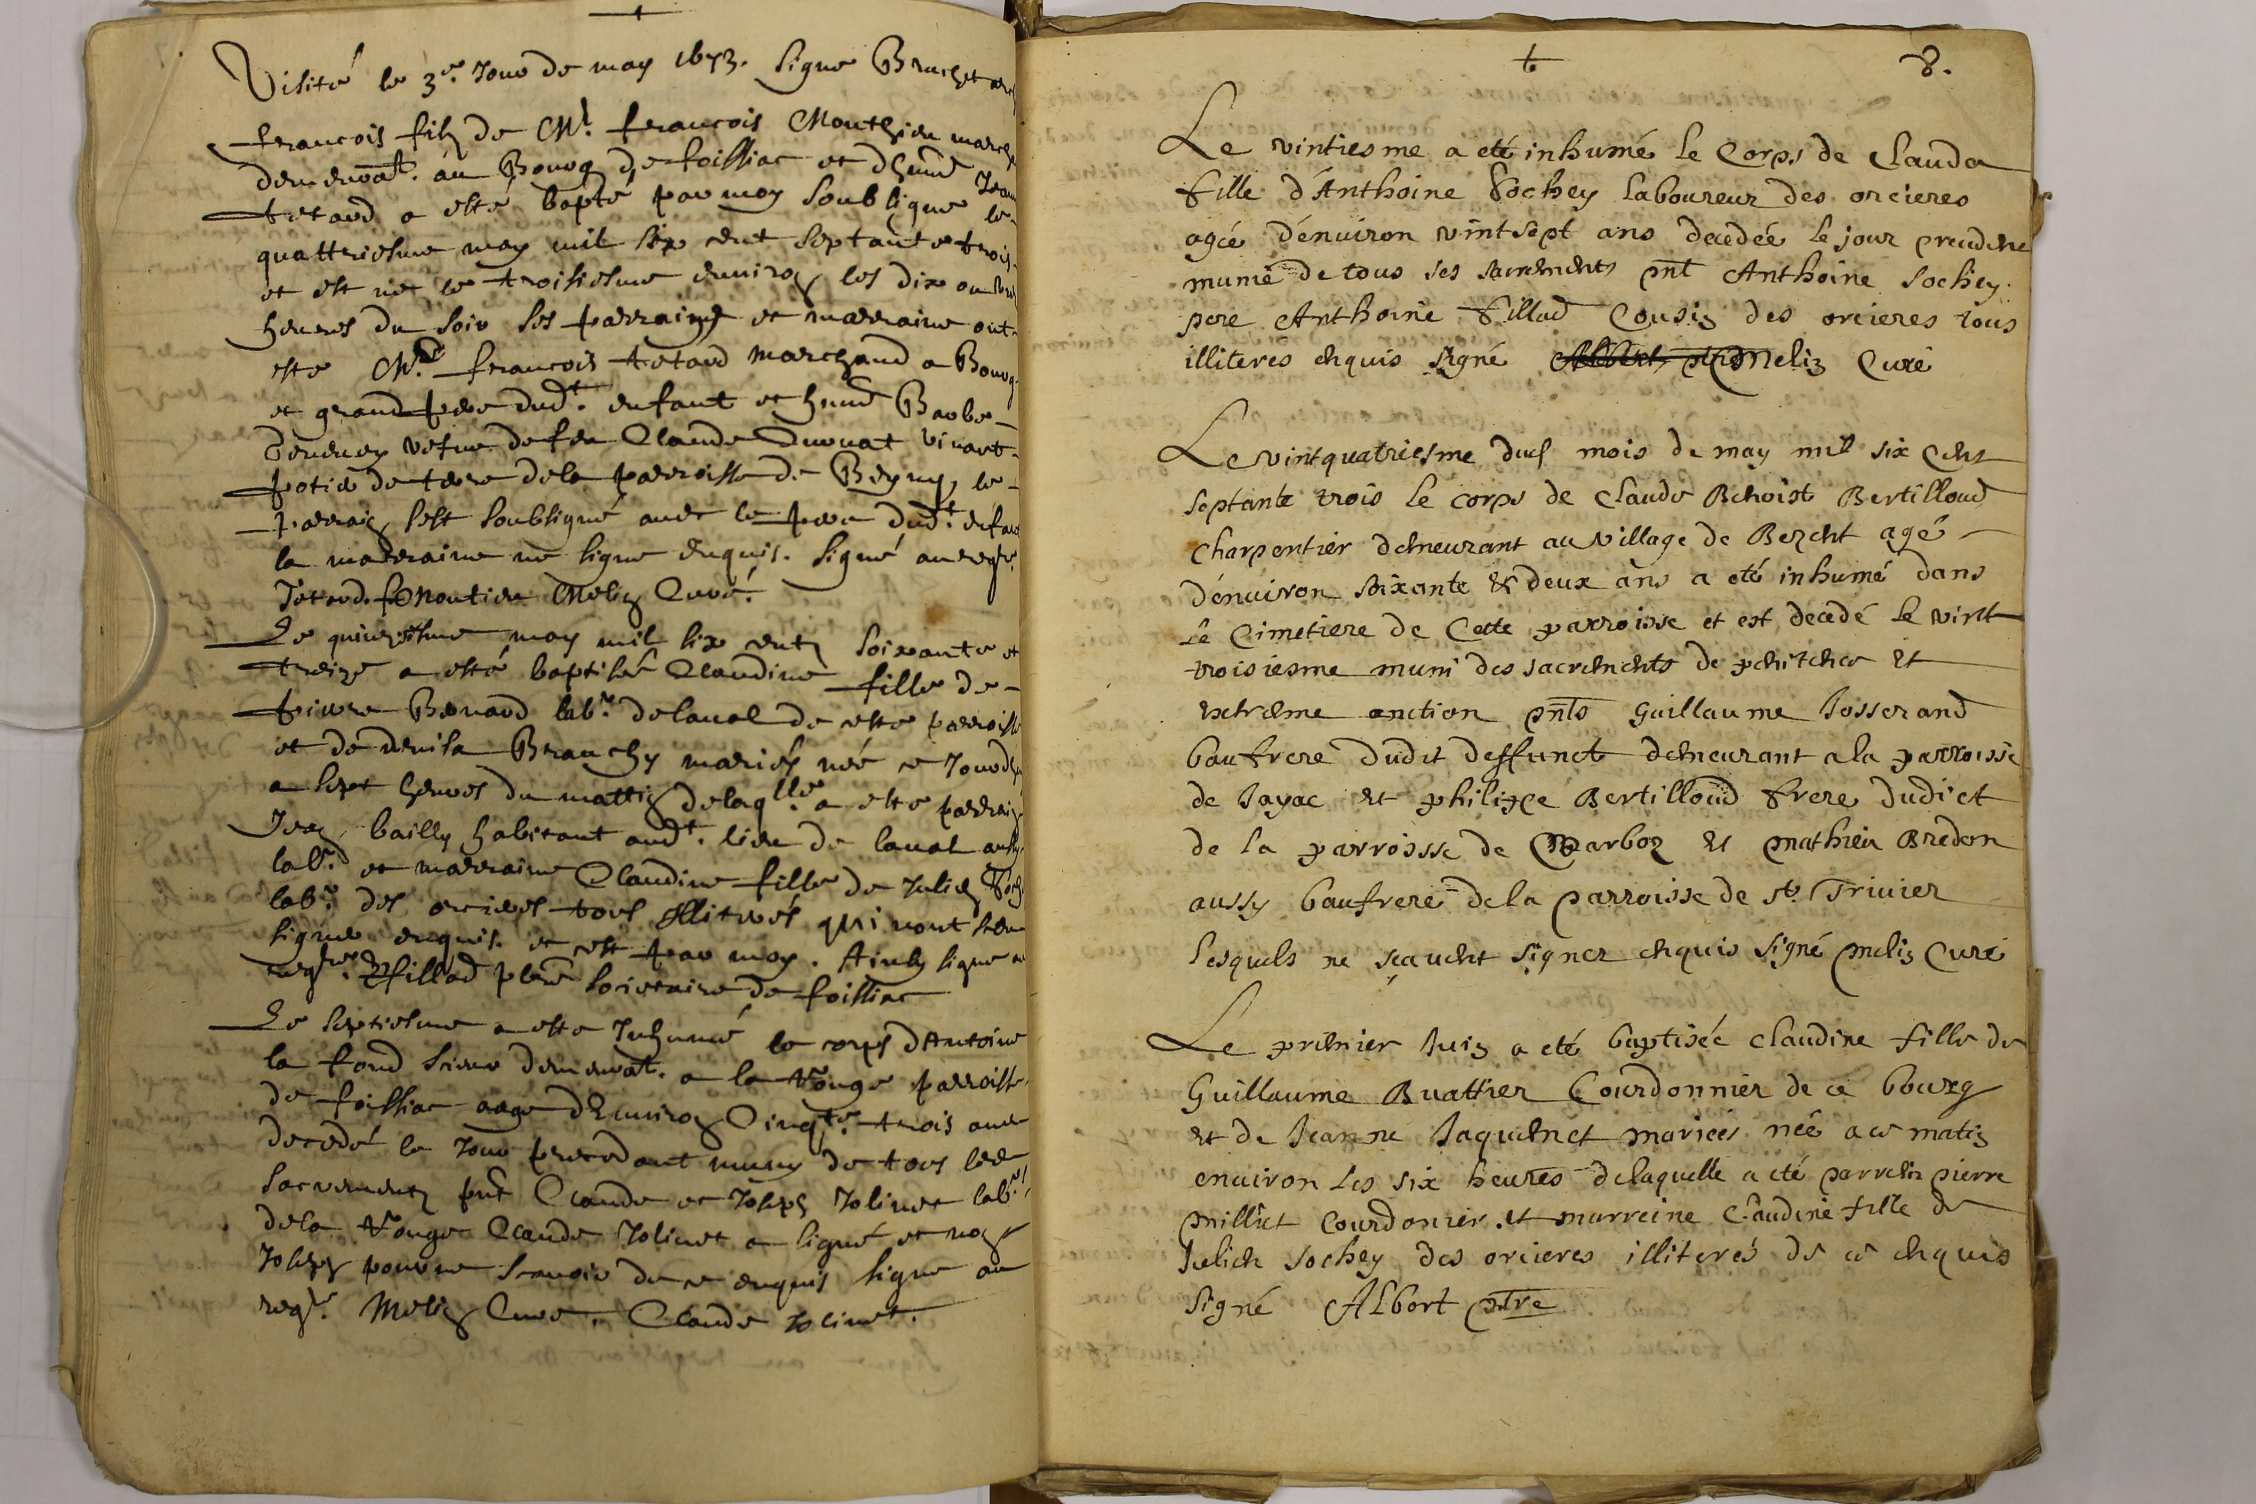 Visité le 3e. Jour de may 1673. signe Bruchet
françois filz de Mr. françois Monthieu march
demeurat. au Bourg de foissiac et dhonn Jean
tetard a esté bapté par moy soubsigné le
quattriesme may mil six cent septante trois
et est né le troisiesme environ les dix ou
heures du soir ses parrains et marraine ont
esté Mr. françois tetard marchand a Bourg
et grand pere dudt. enfant et honn Barbe
vefue de feu Claude Duruat vivant
potie de terre de la parroisse de Beyny, le
parrain sest soubsigné avec le pere dudt. enfant
la marraine ne signe enquis. signé au regre.
Tetard. f Moutieu Melin Curé.
Le quinziesme may mil six cents soixante et
treize a esté baptisée Claudine fille de
pierre Benard labr. de laual de cette parroisse
et de denisa Branchy mariés née ce Jourdhu
a sept heures du mattin delaqlle a esté parrain
Jean bailly habitant audt. lieu de laual aussy
labr. et marraine Claudine fille de Julien Soch
labr. des orcieres tous illiterés qui nont sceu
signer enquis. et cest par moy. Ainsy signe au
regre. Fillod ptre societaire de foissiac
Le septiesme a esté Inhumé le corps dAntoine
la fond sieur demeurat. a la Rouge parroisse
de foissiac aage dEnviron Cinqte. trois ans
decedé le Jour precedant muny de tous les
sacrements pnt Claude et Joseph Jolinet labrs
dela Rouge Claude Jolinet a signé et non
Joseph pour ne scauoir de ce enquis signe au
regr. Melin Curé. Claude Jolinet.
8.
Le vintiesme a eté inhumé le Corps de Clauda
fille d'Anthoine Sochey laboureur des orcieres
agée d'enuiron vintsept ans decedée le jour precedent
munie de tous ses sacrements pnt Anthoine Sochey
pere Anthoine fillod Cousin des orcieres tous
illiterés enquis signé Melin Curé
Le vintquatriesme dud mois de may mil six cens
septante trois le corps de Claude Benoist Bertilloud
Charpentier demeurant au village de Bezent agé
d'enuiron soixante & deux ans a eté inhumé dans
le Cimetiere de Cette parroisse et est decedé le vint
troisiesme muni des sacrements de penitence et
extreme onction pnts Guillaume Josserand
baufrere dudit deffunct demeurant a la parroisse
de Jayac et philipe Bertilloud frere dudict
de la parroisse de Marboz et Mathieu Bredon
aussy baufrere de la parroisse de st. Triuier
lesquels ne sçauent signer enquis signé Melin Curé
Le premier Juin a eté baptisée Claudine fille de
Guillaume Buattier Courdonnier de ce bourg
et de Jeanne Jaquenet mariés née a ce matin
enuiron les six heures delaquelle a eté parrein pierre
Milliet Courdonier. et marreine Claudine fille de
Julien sochey des orcieres illiterés de ce enquis
signé Albert ptre